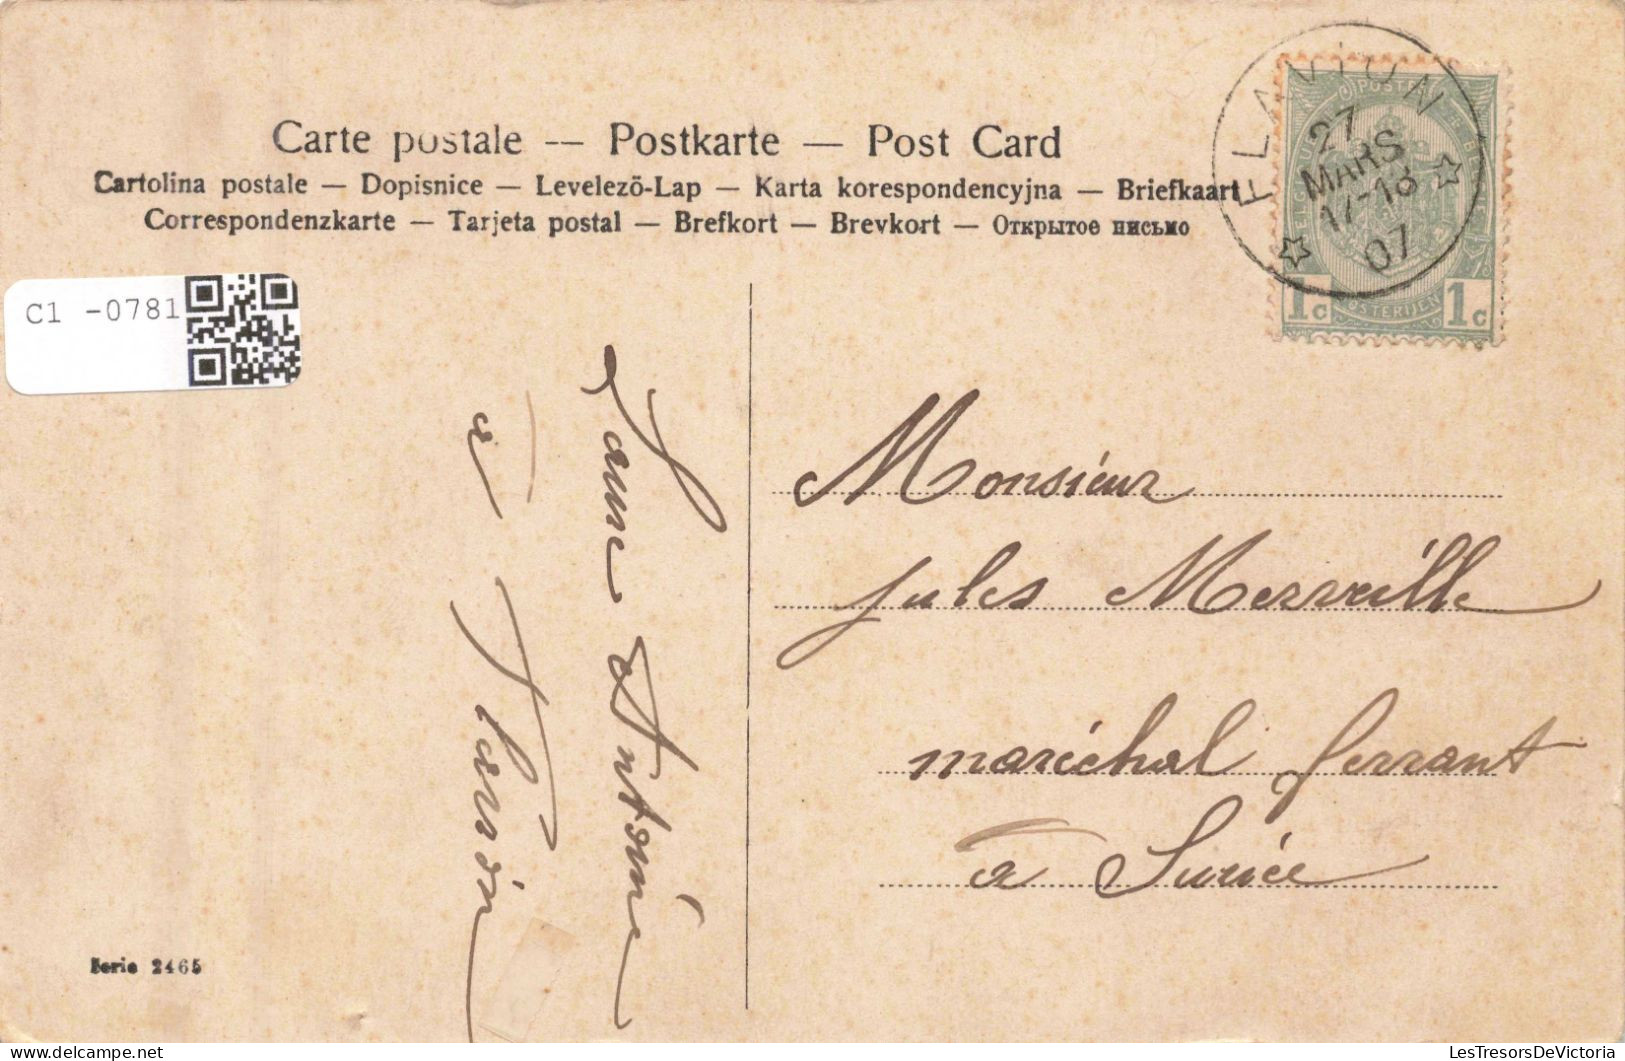 Carte postale — Postkarte — Post Card
Cartolina postale — Dopisnice — Levelezö-Lap — Karta korespondencyjna — Briefkaart
Correspondenzkarte — Tarjeta postal — Brefkort — Brevkort — Открытое письмо
FLAVION
27
MARS
17-18
07
1c
1c
C1 -0781
Monsieur
Jules Merveille
maréchal ferrant
à Surice
Laure Antoine
à Flavion
Serie 2465
LesTresorsDeVictoria